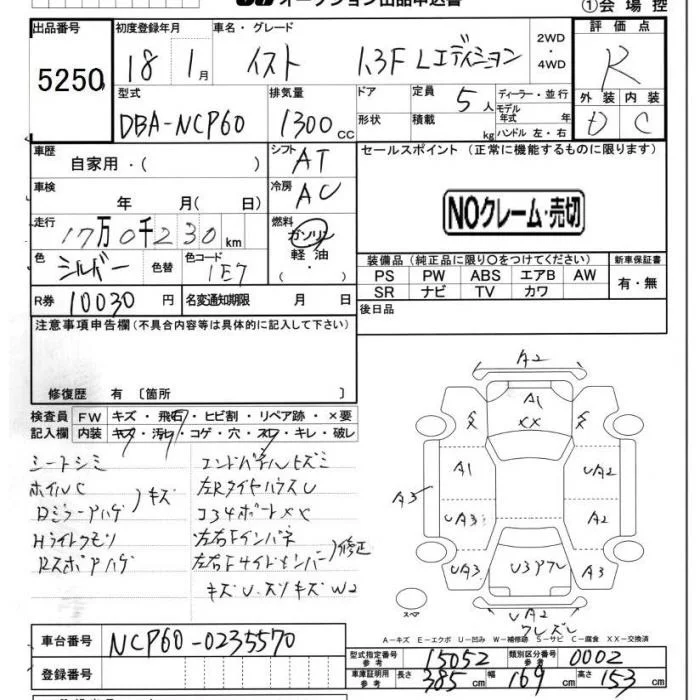 ①会場控
出品番号 初度登録年月 車名・グレード 2WD・4WD 評価点
5250 18 1月 イスト 1.3F Lエディション R
型式 排気量 ドア 定員 ディーラー・並行 外装 内装
DBA-NCP60 1300cc 形状 積載 5人 kg モデル年式 年 ハンドル 左・右 D C
車歴 シフト セールスポイント (正常に機能するものに限ります)
自家用・( ) AT
車検 冷房
年 月( 日) AC NOクレーム・売切
走行 燃料
17万0千230km ガソリン
軽油・
色 シルバー 色替 色コード 1E7
装備品(純正品に限り○をつけてください) 新車保証書
PS PW ABS エアB AW 有・無
SR ナビ TV カワ
R券 10030円 名変通知期限 月 日
後日品
注意事項申告欄(不具合内容等は具体的に記入して下さい)
修復歴 有〔箇所 〕
検査員 FW キズ・飛石・ヒビ割・リペア跡・×要
記入欄 内装 キズ・汚れ・コゲ・穴・スレ・キレ・破レ
シートシミ エンドパネルヒズミ
ホイルC 左Rタイヤハウスu
Dミラーアハゲ キズ コ34ボートXX
Hライトクモリ 左右Fインパネ
Rスポアハゲ 左右Fサイドメンバー 修正
キズu.スリキズW2
A2
A1
XX
A1 UA2
A3
UA3 A2
UA3 A3
UA2
スペア
A-キズ E-エクボ U-凹み W-補修跡 S-サビ C-腐食 XX-交換済
車台番号 NCP60-0235570
型式指定番号 参考 15052 類別区分番号 参考 0002
登録番号
車庫証明用 参考 長さ 385cm 幅 169cm 高さ 153cm